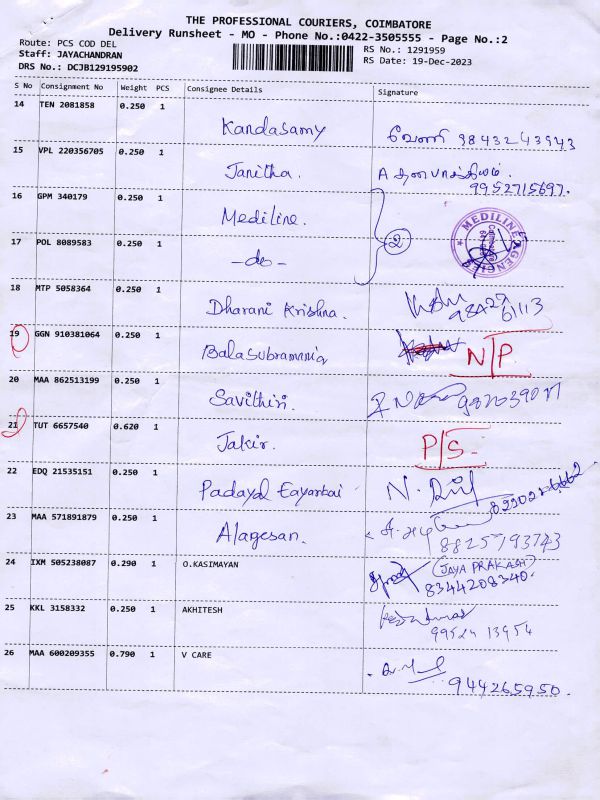 THE PROFESSIONAL COURIERS, COIMBATORE
Delivery Runsheet - MO - Phone No.:0422-3505555 - Page No.:2
Route: PCS COD DEL
Staff: JAYACHANDRAN
DRS No.: DCJB129195902
RS No.: 1291959
RS Date: 19-Dec-2023
S No Consignment No Weight PCS Consignee Details Signature
14 TEN 2081858 0.250 1 Kandasamy வேணி 98432 43943
15 VPL 220356705 0.250 1 Janitha. A தனபாக்கியம். 9952715697.
16 GPM 340179 0.250 1 Mediline. 2 MEDILINE AGENCIES
17 POL 8089583 0.250 1 -do-
18 MTP 5058364 0.250 1 Dharani Krishna. 98429 61113
19 GGN 910381064 0.250 1 Balasubramania N/P
20 MAA 862513199 0.250 1 Savithiri.
21 TUT 6657540 0.620 1 Jakir. P/S-
22 EDQ 21535151 0.250 1 Padayal Eayarkai
23 MAA 571891879 0.250 1 Alagesan. 8825793743
24 IXM 505238087 0.290 1 O.KASIMAYAN (JAYA PRAKASH) 8344208340.
25 KKL 3158332 0.250 1 AKHITESH 99524 13954
26 MAA 600209355 0.790 1 V CARE 944265950.